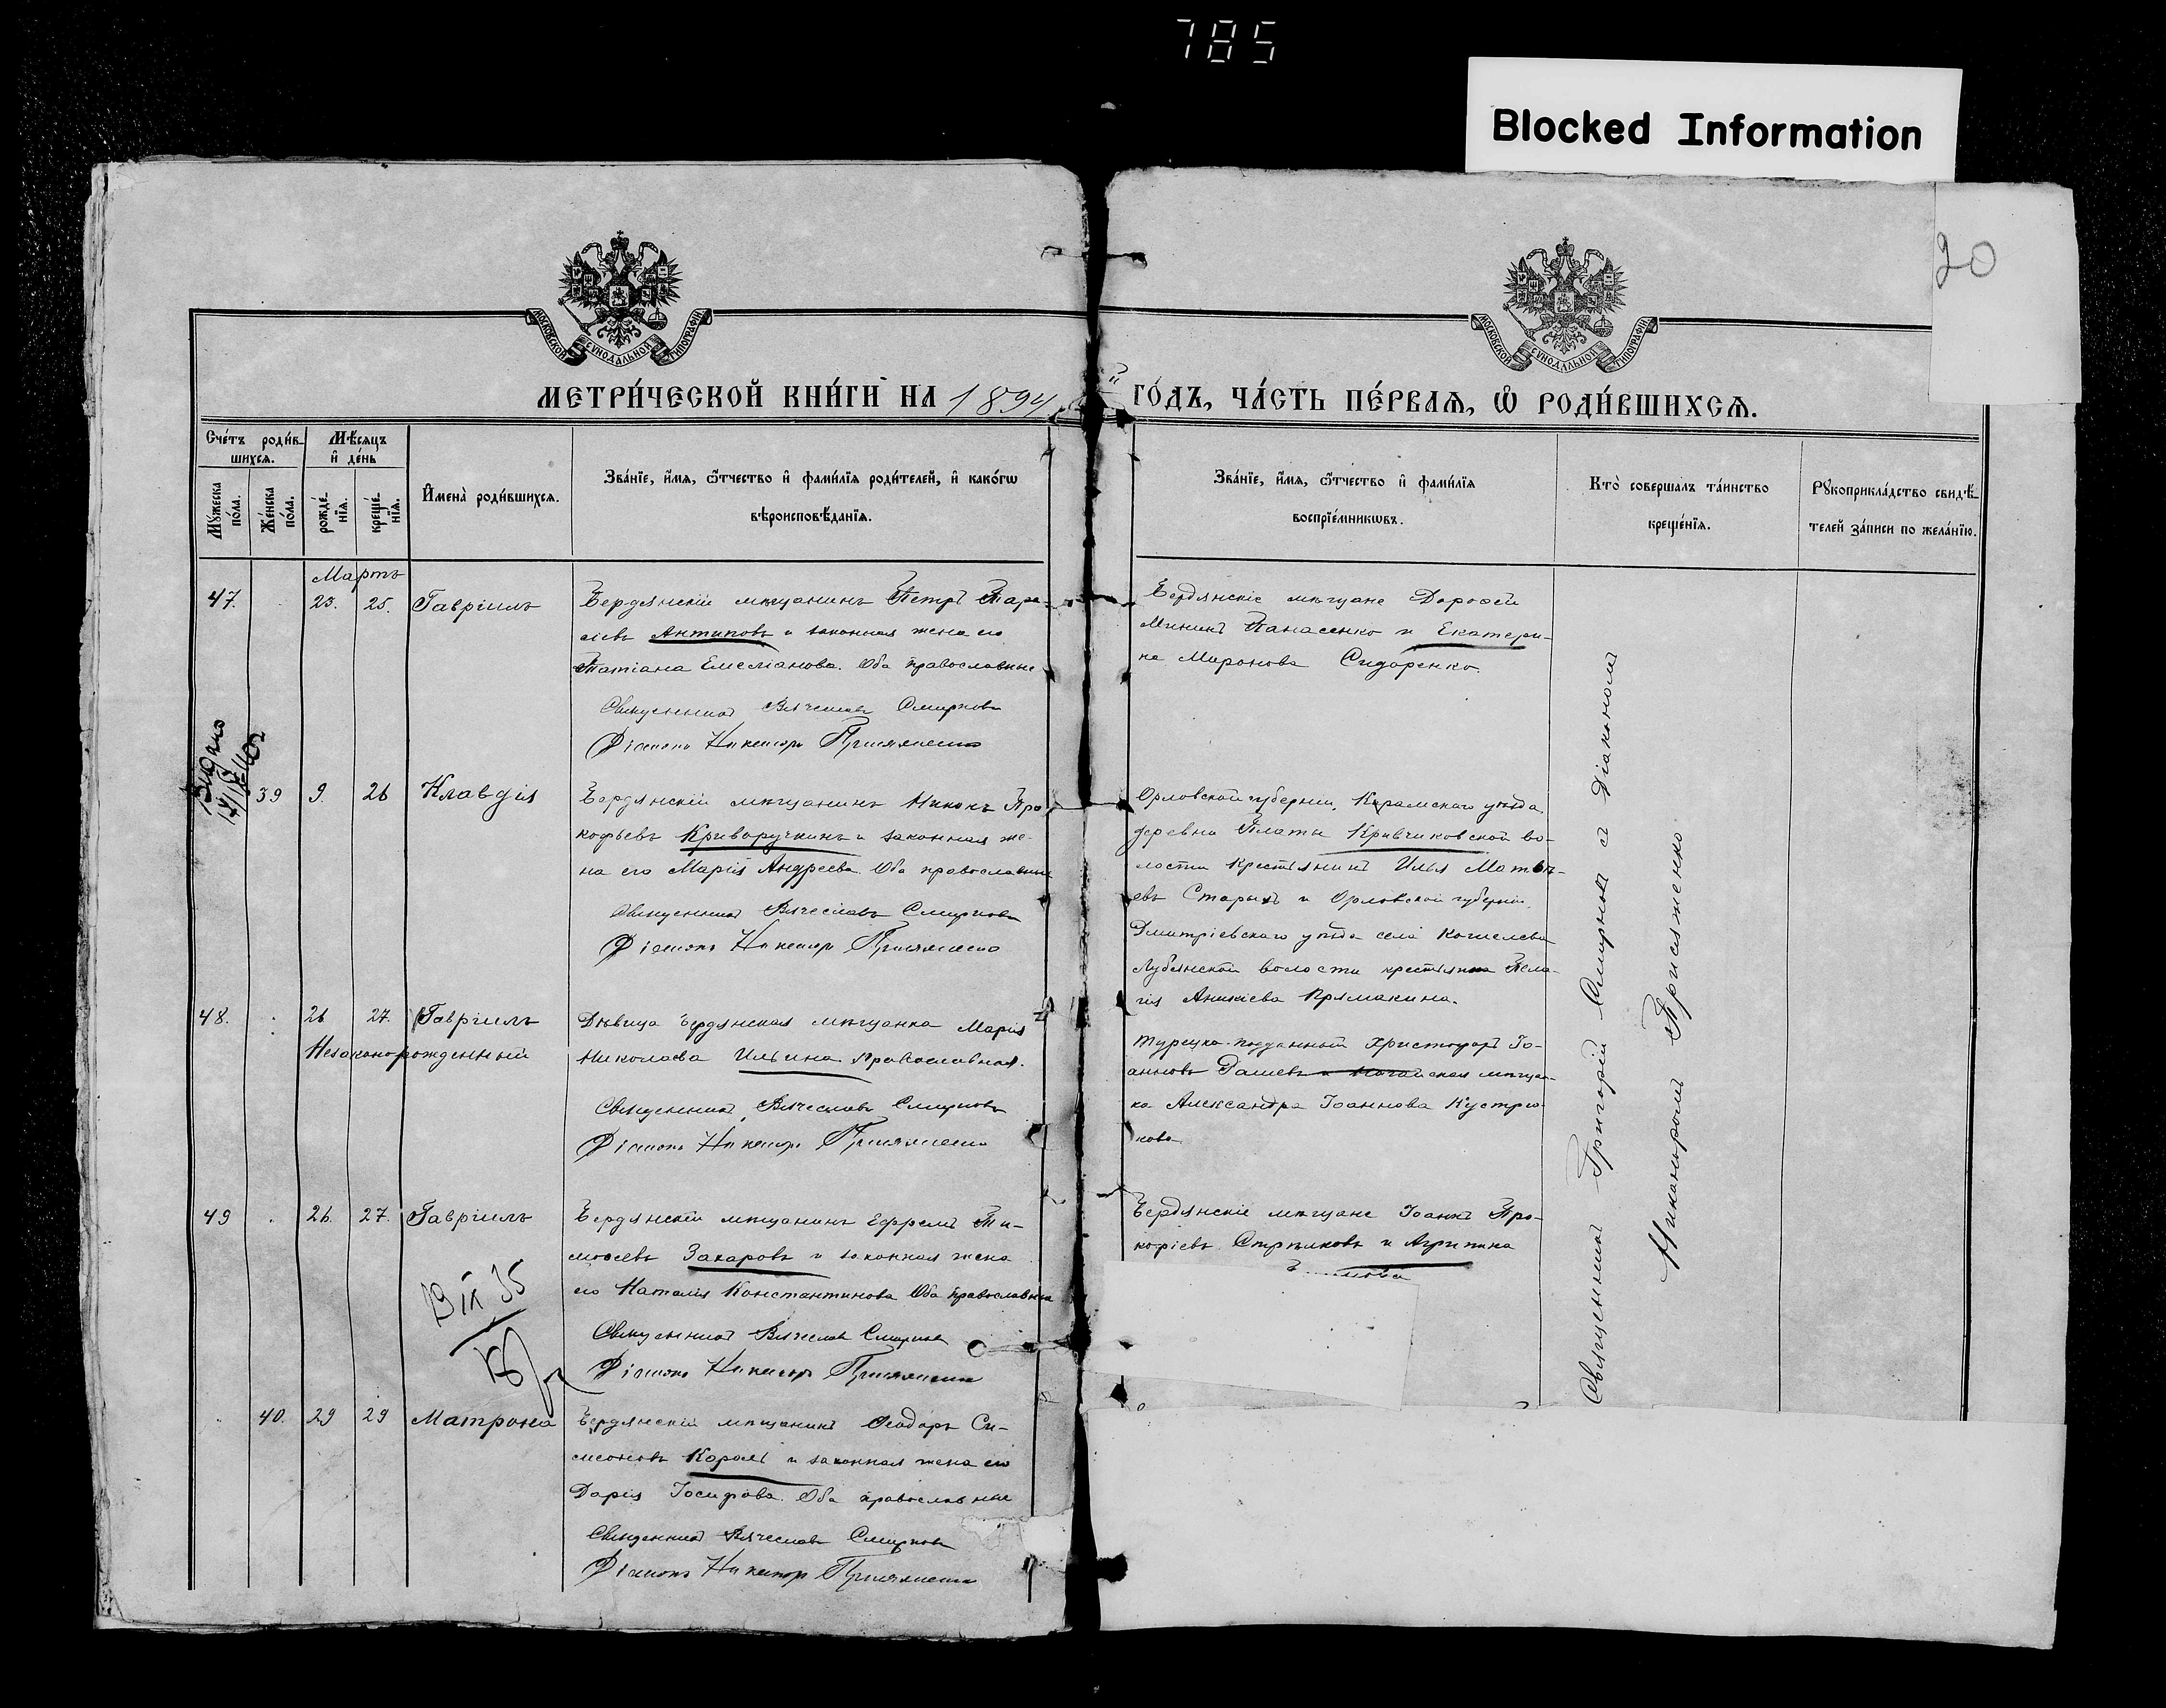 785
Blocked Information
20
МОСКОВСКОЙ СѴНОДАЛЬНОЙ ТИПОГРАФІИ
МОСКОВСКОЙ СѴНОДАЛЬНОЙ ТИПОГРАФІИ
МЕТРИ́ЧЕСКОЙ КНИ́ГИ НА 1894 й ГО́ДЪ, ЧА́СТЬ ПЕ́РВАѦ, Ѽ РОДИ́ВШИХСѦ.
Сче́тъ роди́в-
шихсѧ.
Мꙋ́жеска по́ла.
Же́нска по́ла.
Мѣ́сяцъ
и҆ де́нь
рожде́нїѧ.
креще́нїѧ.
И҆мена̀ роди́вшихсѧ.
Зва́нїе, и҆́мѧ, ѻ҆́тчество и҆ фами́лїѧ роди́телей, и҆ како́гѡ
вѣроисповѣ́данїѧ.
Зва́нїе, и҆́мѧ, ѻ҆́тчество и҆ фами́лїѧ
воспрїе́мникѡвъ.
Кто̀ соверша́лъ та́инство
креще́нїѧ.
Рꙋкоприкла́дство свидѣ́-
телей за́писи по жела́нїю.
Мартъ
47. 23. 25. Гавріилъ
Бердянскій мѣщанинъ Петръ Тара-
сіевъ Антиповъ и законная жена его
Татіана Емеліанова. Оба православные
Священникъ Вячеславъ Смирновъ
Діаконъ Никаноръ Присяженко
Бердянскіе мѣщане Дороѳей
Мининъ Панасенко и Екатери-
на Миронова Сидоренко.
Видано
39 9. 26 Клавдія
Бердянскій мѣщанинъ Никонъ Про
кофьевъ Криворучкинъ и законная же-
на его Марія Андреева. Оба православные
Священникъ Вячеславъ Смирновъ
Діаконъ Никаноръ Присяженко
Орловской губерніи, Карамскаго уѣзда
деревни Платы Кривчиковской во-
лости крестьянинъ Илья Матвѣ-
евъ Старыхъ и Орловской губерніи,
Дмитріевскаго уѣзда села Кошелева
Лубянской волости крестьянка Пела-
гія Аникіева Прямакина.
48. 26 27. Гавріилъ
Незаконорожденный
Дѣвица бердянская мѣщанка Марія
Николаева Ильина. Православная.
Священникъ Вячеславъ Смирновъ
Діаконъ Никаноръ Присяженко
Турецко-подданный Христофоръ Іо-
анновъ
ка Александра Іоаннова Кустрю-
кова
49 26. 27. Гавріилъ
Бердянскій мѣщанинъ Ефремъ Ти-
моѳеевъ Захаровъ и законная жена
его Наталія Константинова Оба православные
Священникъ Вячеславъ Смирновъ
Діаконъ Никаноръ Присяженко
Бердянскіе мѣщане Іоаннъ Про-
кофіевъ Стрѣлковъ и Агрипина
40. 29 29 Матрона
Бердянскій мѣщанинъ Ѳеодоръ Си-
меоновъ Король и законная жена его
Дарія Іосифова. Оба православные
Священникъ Вячеславъ Смирновъ
Діаконъ Никаноръ Присяженко
Священникъ Григорій Смирновъ съ Діакономъ
Никаноромъ Присяженко